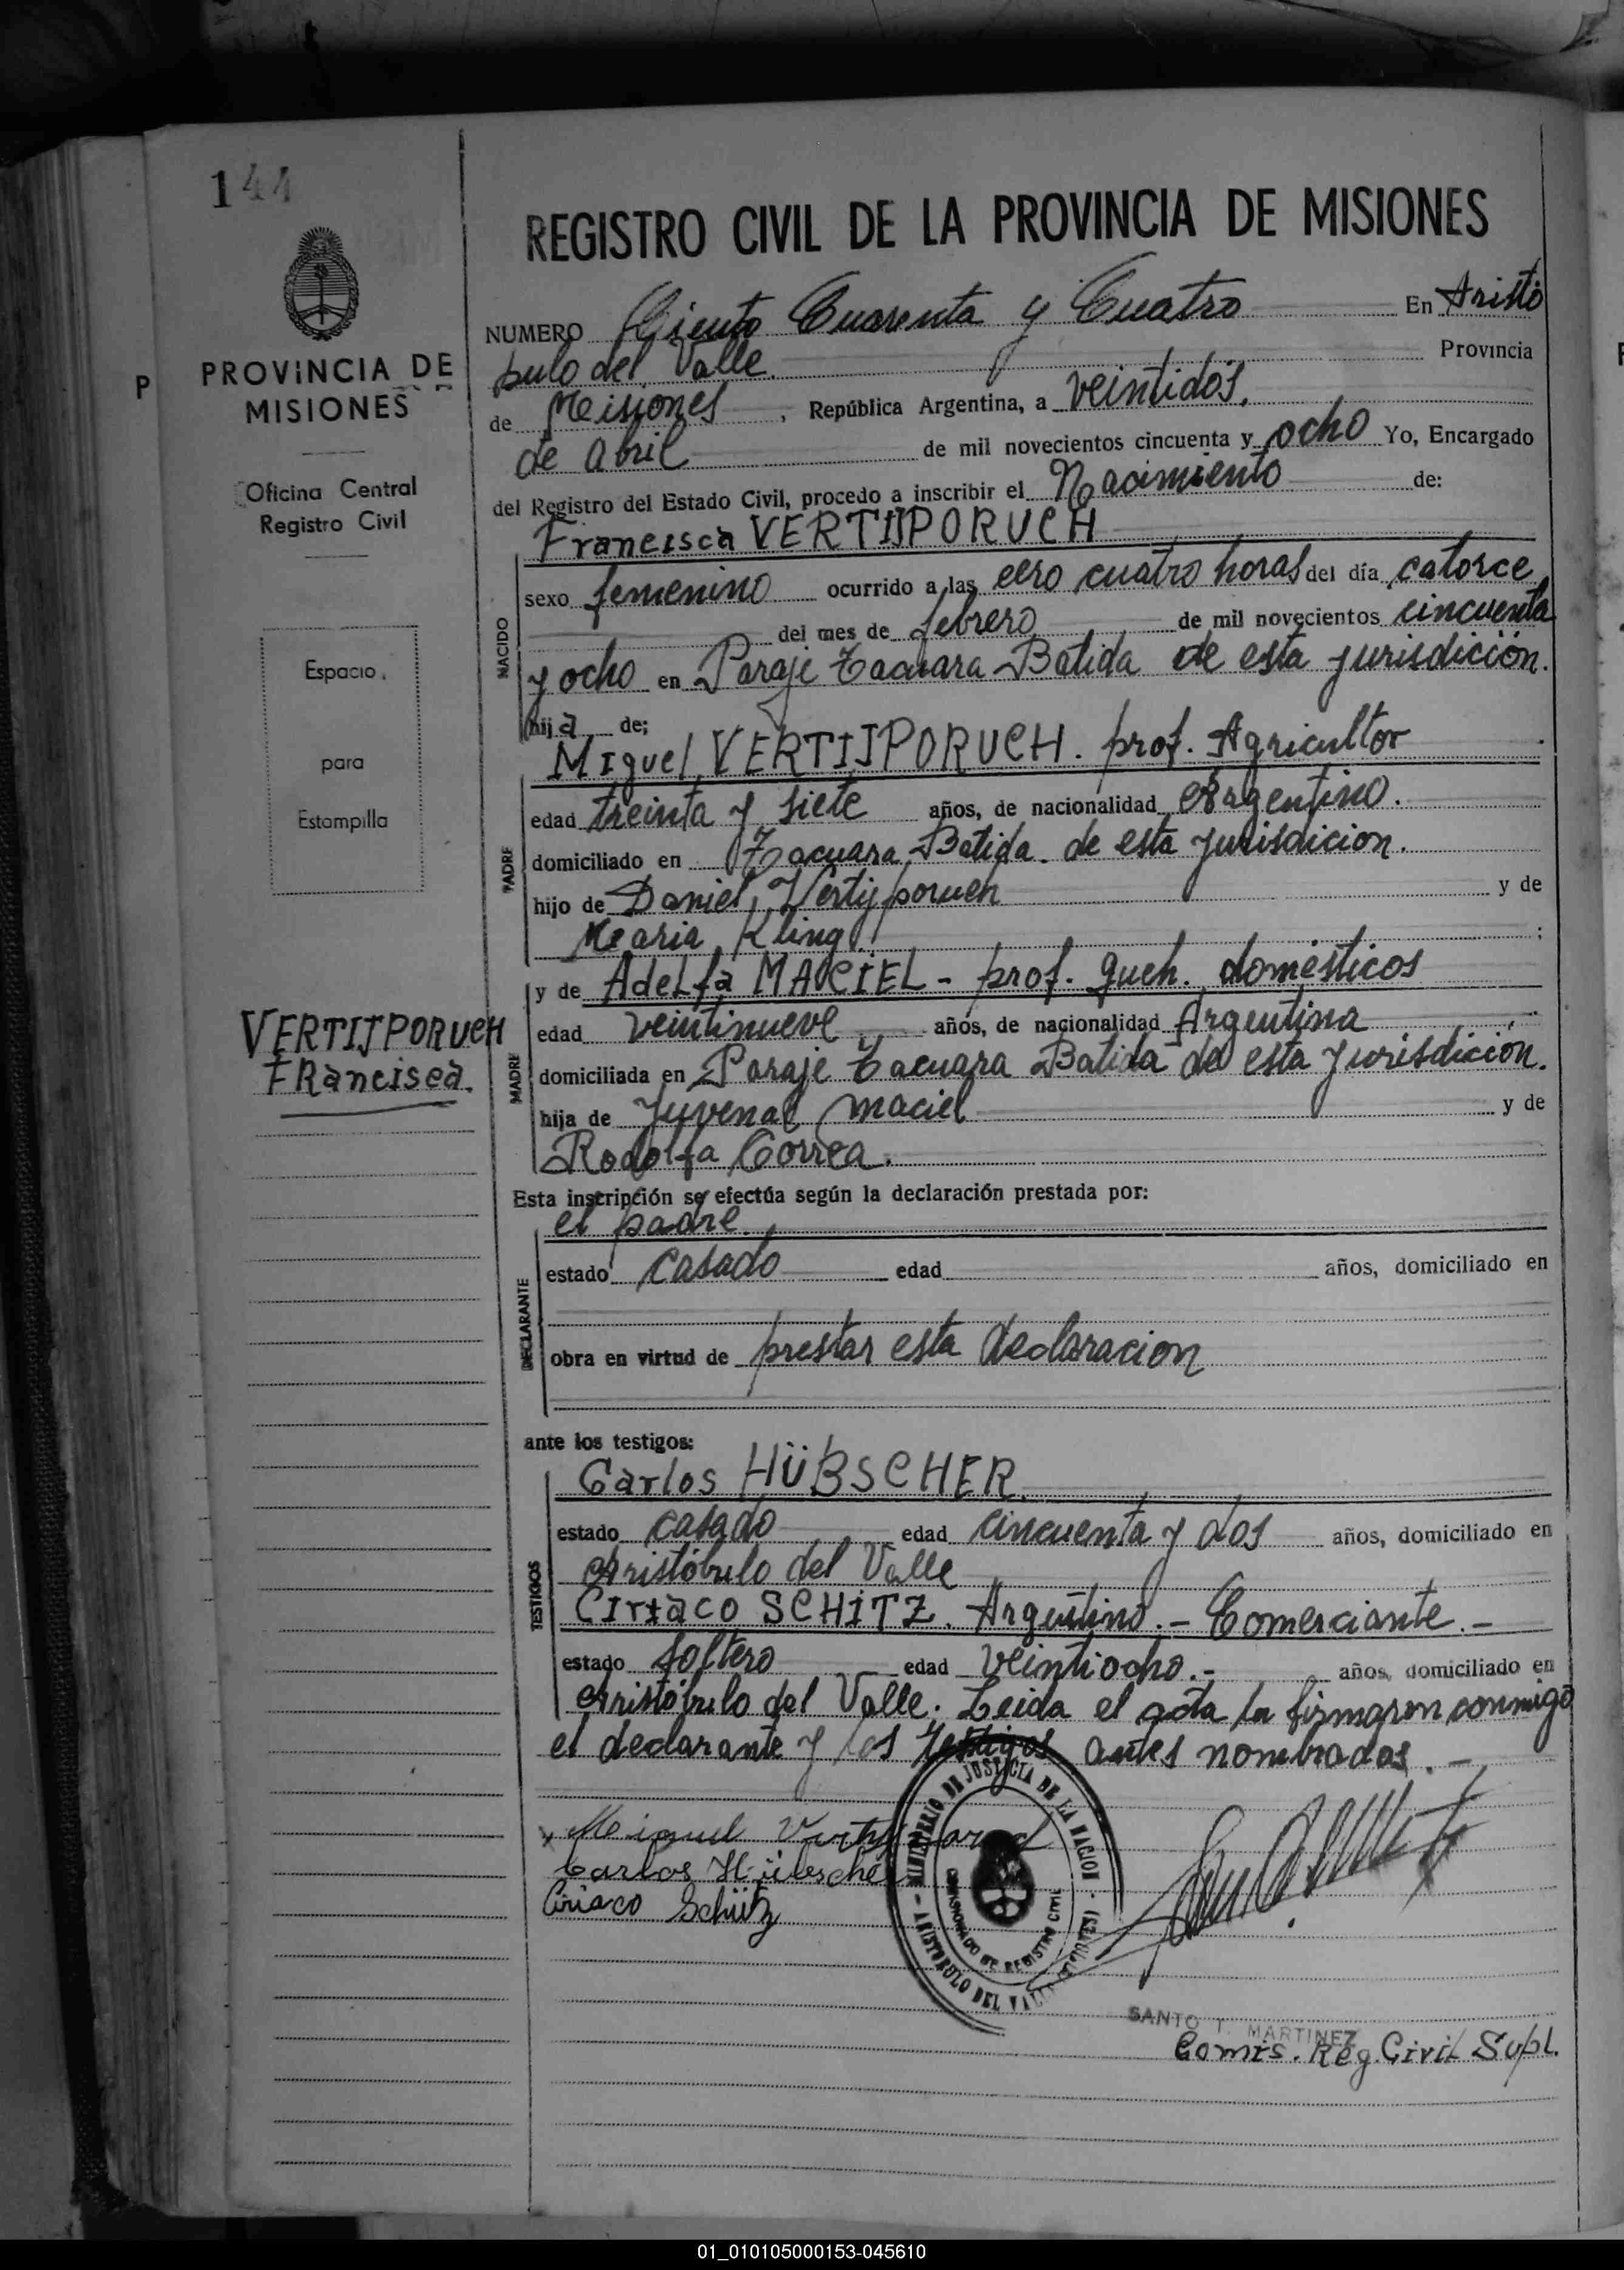 144
PROVINCIA DE
MISIONES
Oficina Central
Registro Civil
Espacio
para
Estampilla
VERTIJPORUCH
FRancisca.
P
REGISTRO CIVIL DE LA PROVINCIA DE MISIONES
NUMERO Ciento Cuarenta y Cuatro En Aristó
bulo del Valle. Provincia
de Misiones, República Argentina, a veintidós,
de abril de mil novecientos cincuenta y ocho Yo, Encargado
del Registro del Estado Civil, procedo a inscribir el Nacimiento de:
Francisca VERTIJPORUCH
NACIDO
sexo femenino ocurrido a las cero cuatro horas del día catorce
del mes de febrero de mil novecientos cincuenta
y ocho en Paraje Tacuara Batida de esta jurisdición.
hija de;
Miguel VERTIJPORUCH. prof. Agricultor
PADRE
edad treinta y siete años, de nacionalidad Argentino.
domiciliado en Tacuara Batida de esta jurisdicion.
hijo de Daniel Vertijporuch y de
Maria Kling ;
y de Adelfa MACIEL - prof. queh. domésticos
MADRE
edad veintinueve años, de nacionalidad Argentina
domiciliada en Paraje Tacuara Batida de esta jurisdición.
hija de Juvenal Maciel y de
Rodolfa Correa.
Esta inscripción se efectúa según la declaración prestada por:
el padre.
DECLARANTE
estado casado edad años, domiciliado en
obra en virtud de prestar esta declaracion
ante los testigos:
Carlos HÜBSCHER.
TESTIGOS
estado casado edad cincuenta y dos años, domiciliado en
Aristóbulo del Valle
Ciriaco SCHITZ. Argentino.- Comerciante.-
estado soltero edad veintiocho.- años, domiciliado en
Aristóbulo del Valle. Leida el acta la firmaron conmigo
el declarante y los testigos antes nombrados.-
Carlos Hübscher
Ciriaco Schütz
MINISTERIO DE JUSTICIA DE LA NACION
- ARISTOBULO DEL VALLE (MISIONES) -
COMISIONADO DE REGISTRO CIVIL
SANTO T. MARTINEZ
Comis. Reg. Civil Supl.
01_010105000153-045610